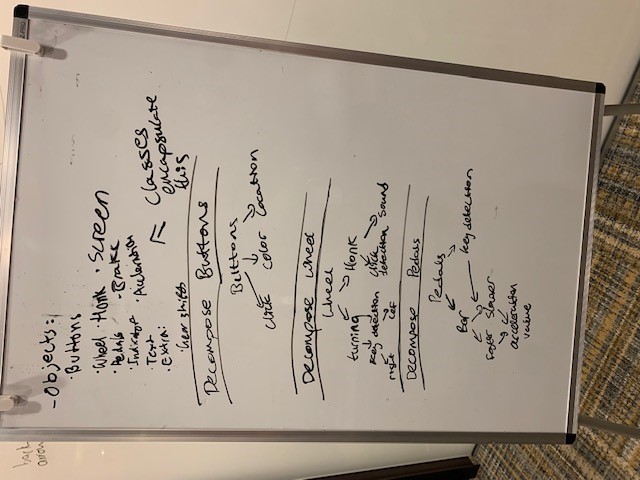 - Objects:
· Buttons
· Wheel · Honk · Screen
· Pedals · Brake
· Indicator · Automatic
· Text
· Extra:
Gear shifts
Classes
encapsulate
this
Decompose Buttons
Buttons
Click color location
Decompose Wheel
Wheel
turning Honk
Key detection click detection Sound
right left
Decompose Pedals
Pedals
Bar key detection
faster slower
acceleration
value
back
arrow